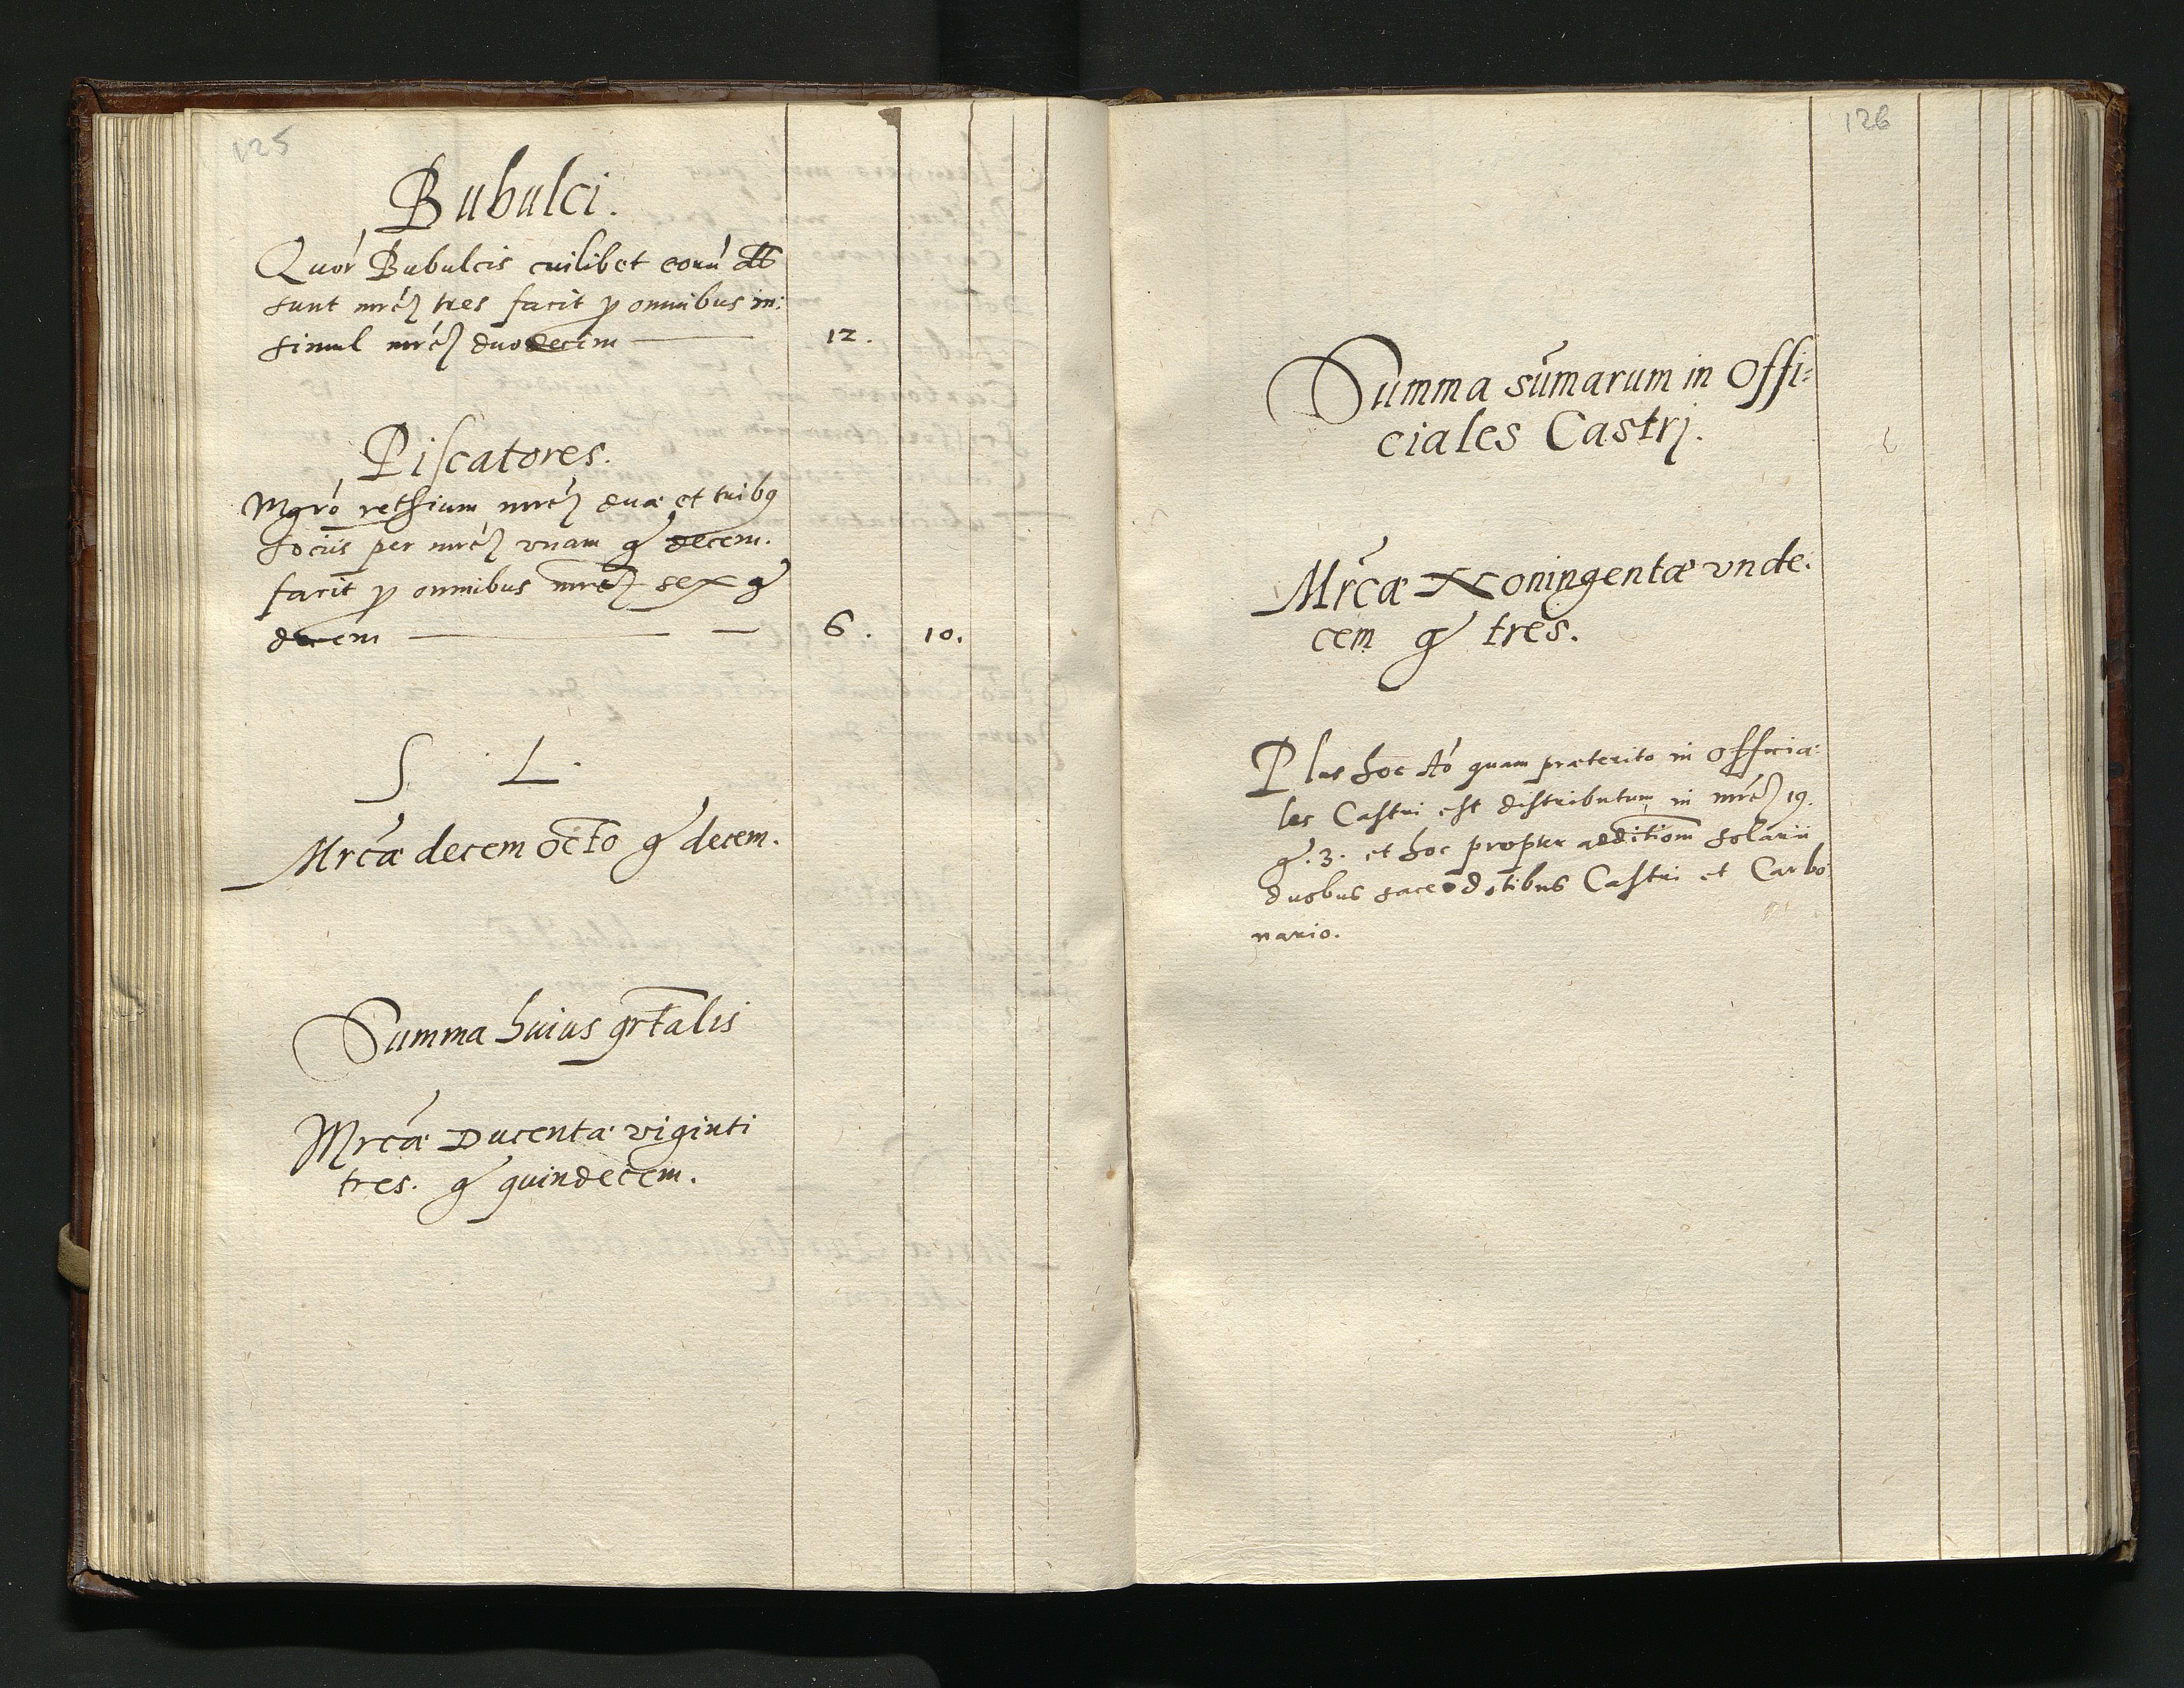 125
Bubulci.
Quor Bubulcis cuilibet eoru
sunt mrc tres facit p omnibus in:
simul mrc duodecim 12.
Piscatores.
Mgro rethium mrc duæ et tribq
sociis per mrc vnam g decem.
facit p omnibus mrc sex g
decem 6. 10.
S L.
Mrcæ decem octo g decem.
Summa huius grtalis
Mrcæ Ducentæ viginti
tres. g quindecem.
126
Summa sumarum in Offi:
ciales Castrj.
Mrcæ Noningentæ vnde:
cem g tres.
Plus hoc Ao quam præterito in Officia:
les Castri est distributum in mrc 19.
g. 3. et hoc propter additiom solarii
duobus sacerdotibus Castri et Carbo
nario.